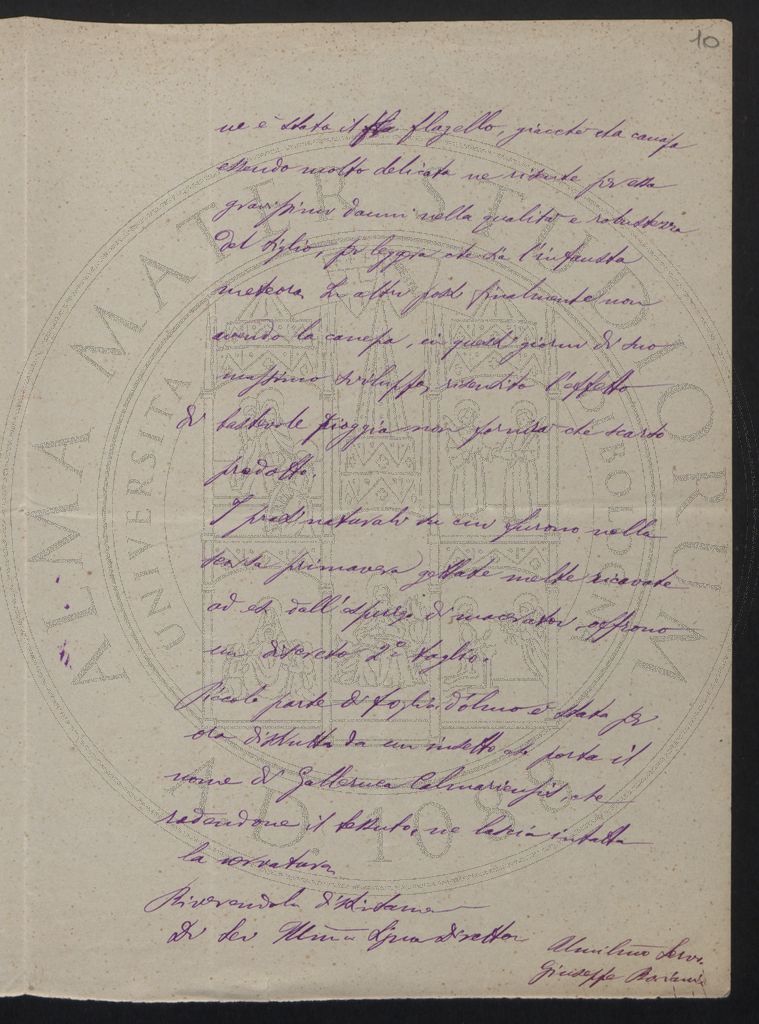 10
ne è stato il flagello, giacchè la canapa
essendo molto delicata ne risente per essa
gravissimi danni nella qualità e robustezza
del tiglio, per leggera che sia l'infausta
meteora. In altri posti finalmente non
avendo la canepa, in questi giorni di suo
massimo sviluppo, risentito l'effetto
di bastevole pioggia non fornirà che scarso
prodotto.
I prati naturali su cui furono nella
scorsa primavera gettate melte ricavate
ad es. dall'espurgo di maceratoi, offrono
un discreto 2° taglio.
Piccola parte di foglia d'olmo è stata per
ora distrutta da un insetto che porta il
nome di Galleruca Calmariensis, che
rodendone il tessuto, ne lascia intatta
la nervatura.
Riverendola distintamente
Di Lei Sigra Direttor
Umilmo Servo
Giuseppe
ALMA MATER STUDIORUM
UNIVERSITA DI BOLOGNA
A.D. 1088